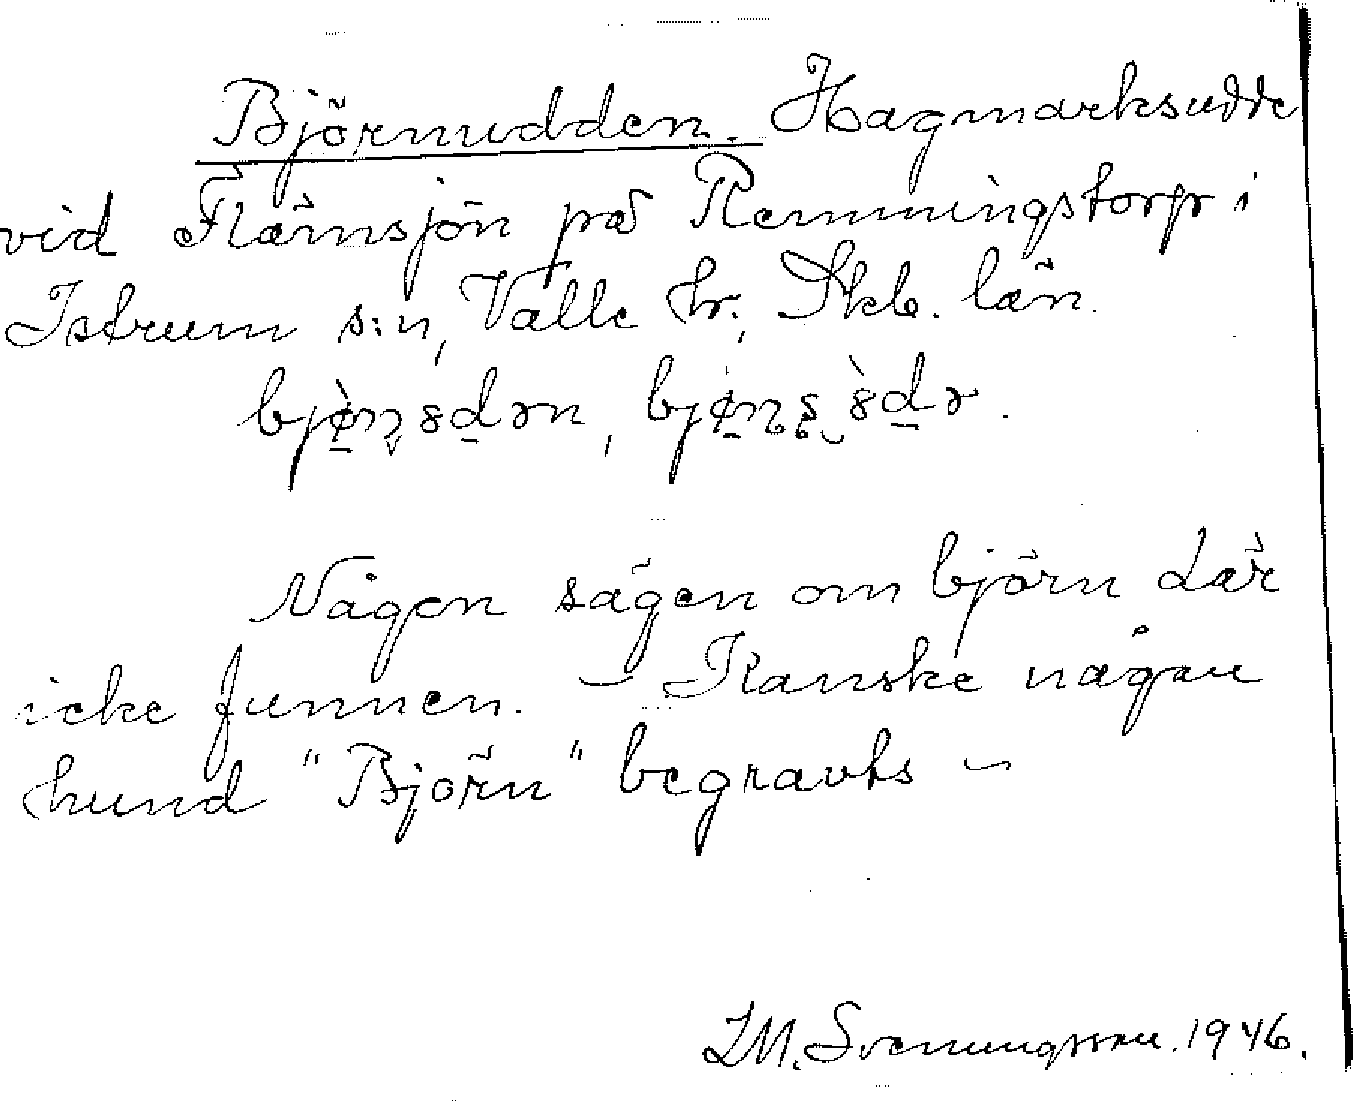 Björnudden. Hagmarksudde
vid Flämsjön på Remmingstorp i
Istrum s:n, Valle hr., Skb. län.
bjø̀n̥8dən, bjø̀n̥s̥ 8̀də.
Någon sägen om björn där
icke funnen. – Kanske någon
hund "Björn" begravts –
I.M. Svenungsson. 1946.